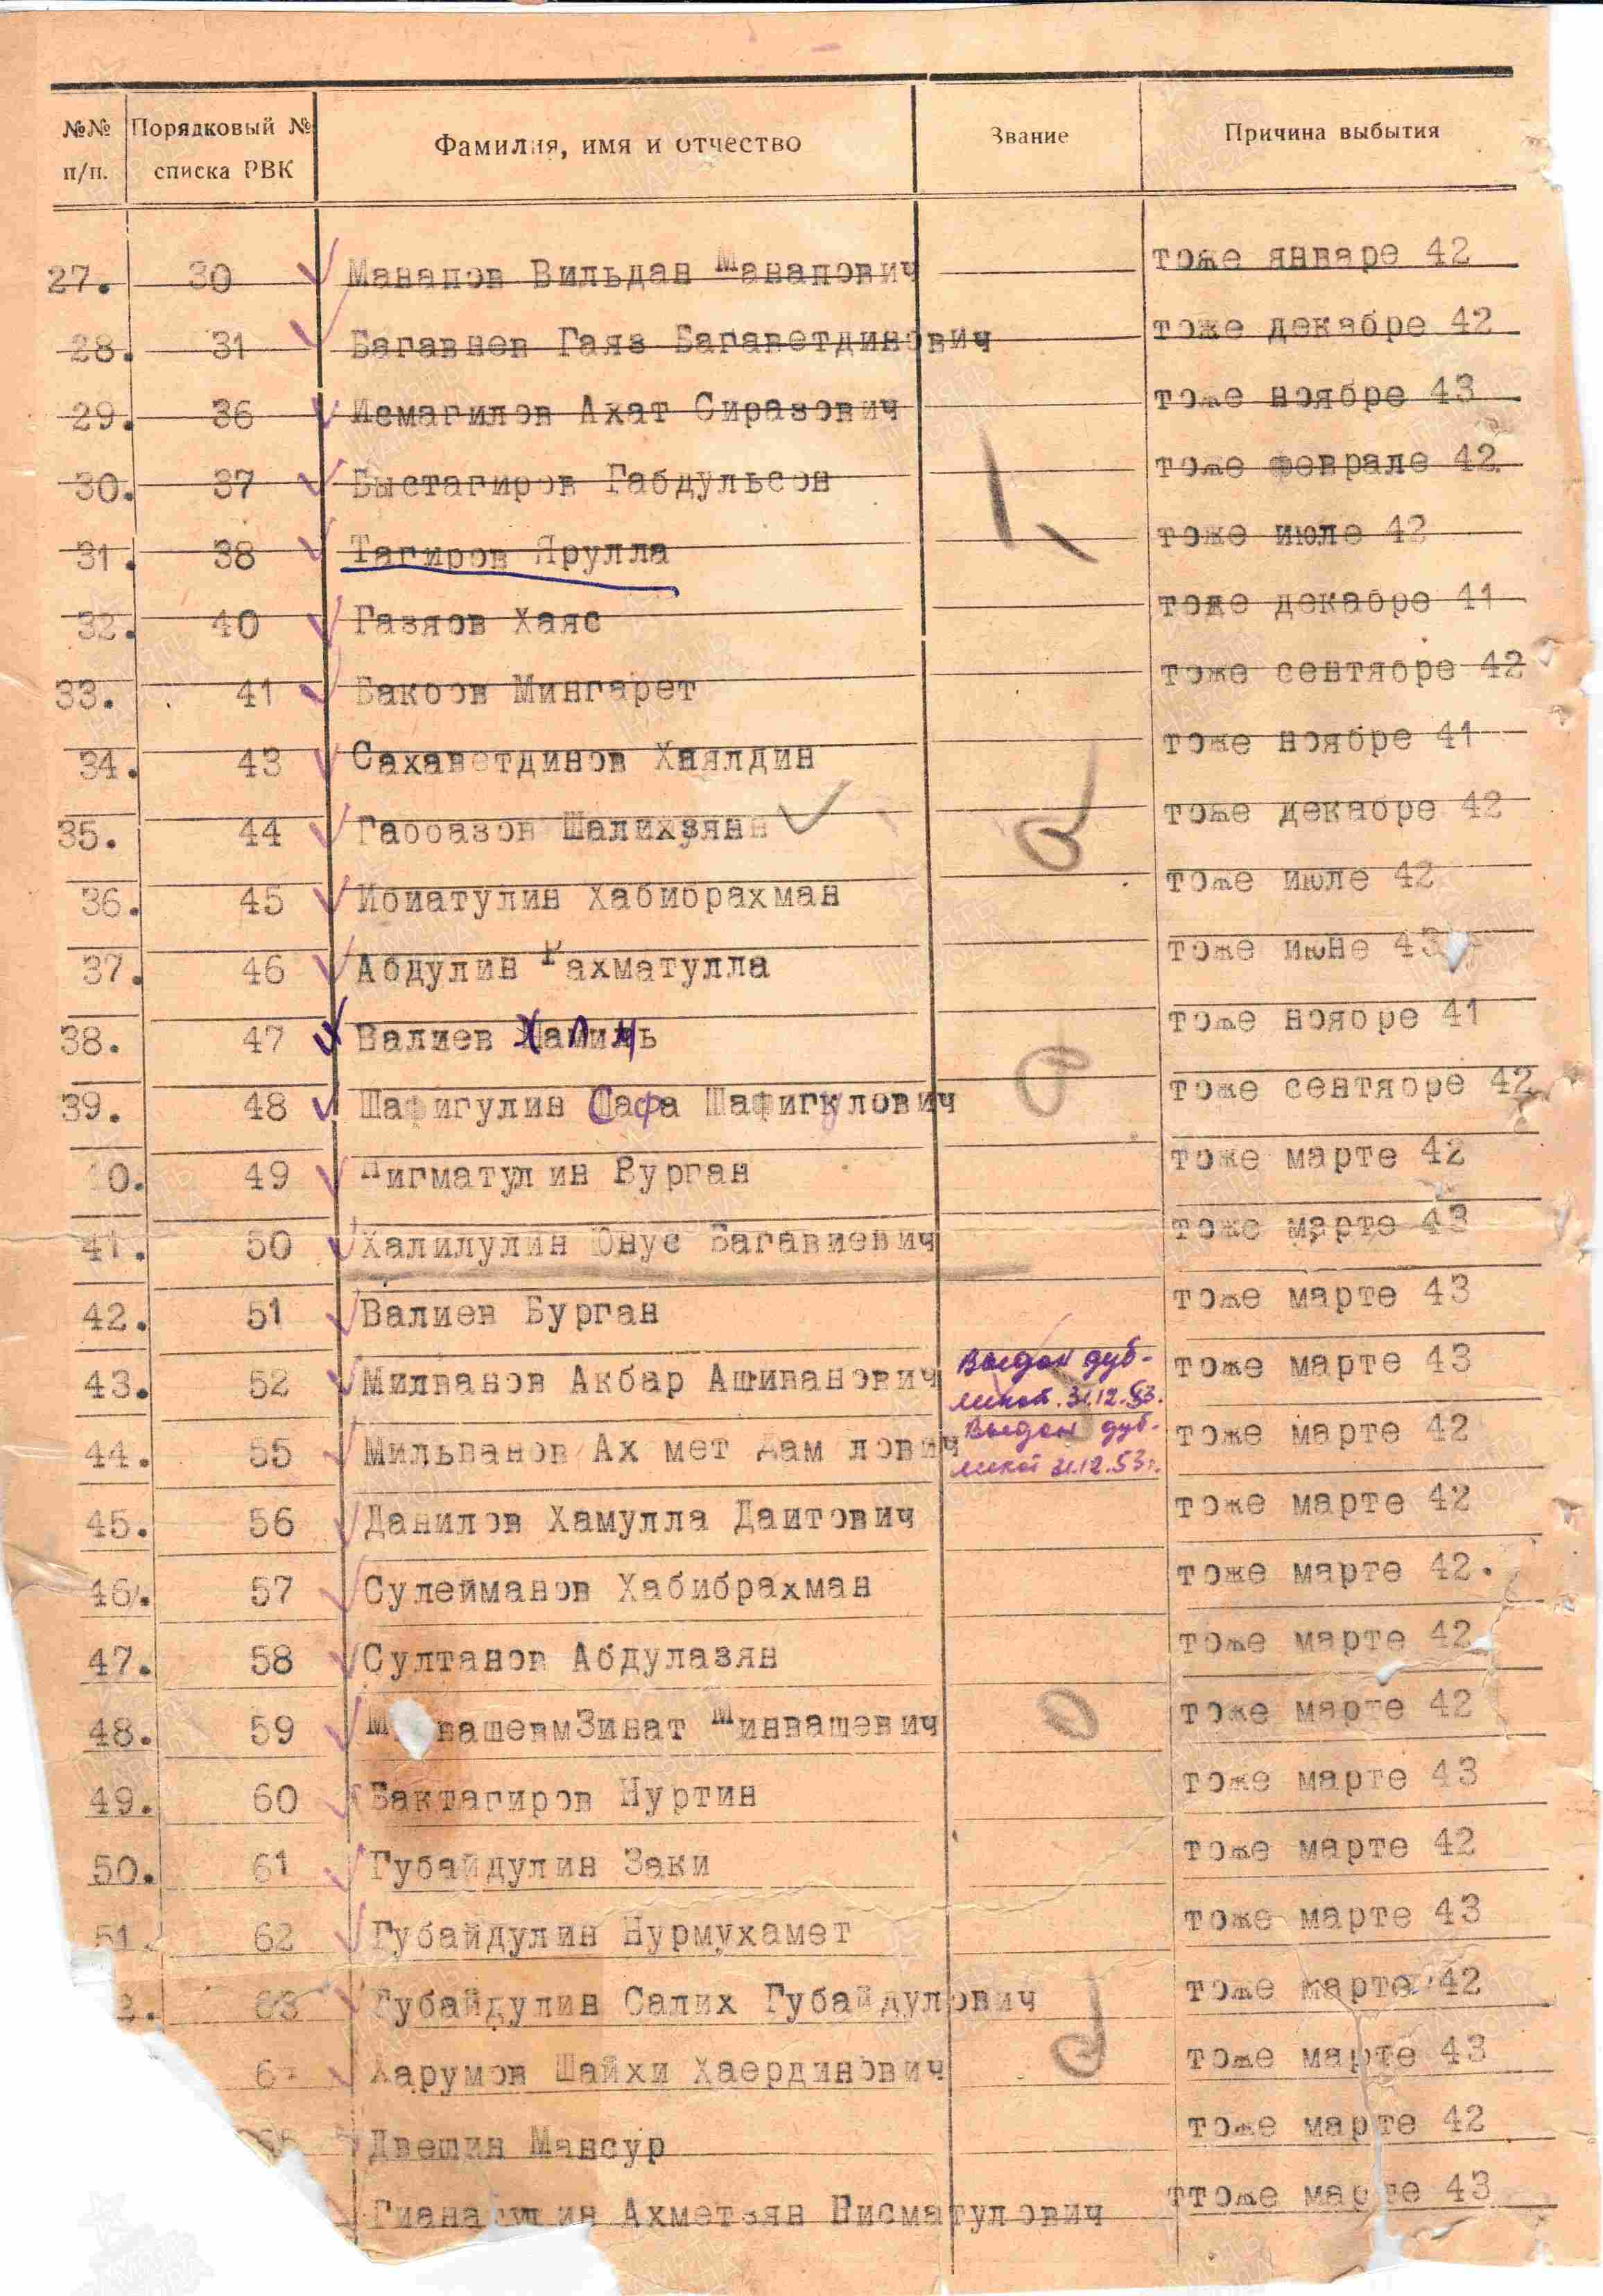 №№ п/п. Порядковый № списка РВК Фамилия, имя и отчество Звание Причина выбытия
27. 30 Манапов Вильдан Манапович тоже январе 42
28. 31 Багавиев Гаяз Багаветдинович тоже декабре 42
29. 36 Исмагилов Ахат Сиразович тоже ноябре 43
30. 37 Быстагиров Габдульсон тоже феврале 42
31. 38 Тагиров Ярулла тоже июле 42
32. 40 Газяов Хаяс тоже декабре 41
33. 41 Бакоов Мингарет тоже сентябре 42
34. 43 Сахаветдинов Хаялдин тоже ноябре 41
35. 44 Габбазов Шалихзян тоже декабре 42
36. 45 Ибиатулин Хабибрахман тоже июле 42
37. 46 Абдулин Рахматулла тоже июне 43
38. 47 Валиев тоже ноябре 41
39. 48 Шафигулин Сафа Шафигулович тоже сентябре 42
0. 49 Нигматулин Бурган тоже марте 42
41. 50 Халилулин Юнус Багавиевич тоже марте 43
42. 51 Валиев Бурган тоже марте 43
43. 52 Милванов Акбар Ашиванович Выдан дуб- тоже марте 43
ликат. 31.12.53.
44. 55 Мильванов Ах мет лович Выдан дуб- тоже марте 42
ликат 31.12.53г.
45. 56 Данилов Хамулла Даитович тоже марте 42
46. 57 Сулейманов Хабибрахман тоже марте 42.
47. 58 Султанов Абдулазян тоже марте 42
48. 59 М вашевмЗинат Минвашевич тоже марте 42
49. 60 Бактагиров Нуртин тоже марте 43
50. 61 Губайдулин Заки тоже марте 42
51. 62 Губайдулин Нурмухамет тоже марте 43
2. 63 Губайдулин Салих Губайдулович тоже марте 42
Харумов Шайхи Хаердинович тоже марте 43
Двешин Мансур тоже марте 42
Гианатулин Ахметзян Нисматулович ттоже марте 43